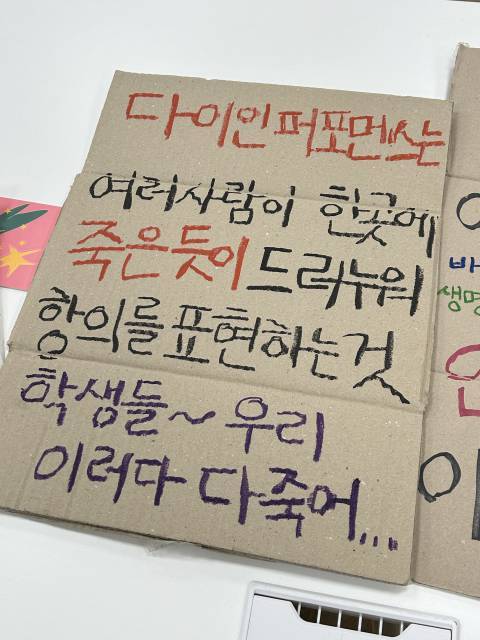 다이인 퍼포먼스는
여러사람이 한곳에
죽은듯이 드러누워
항의를 표현하는것
학생들~ 우리
이러다 다죽어...
생명